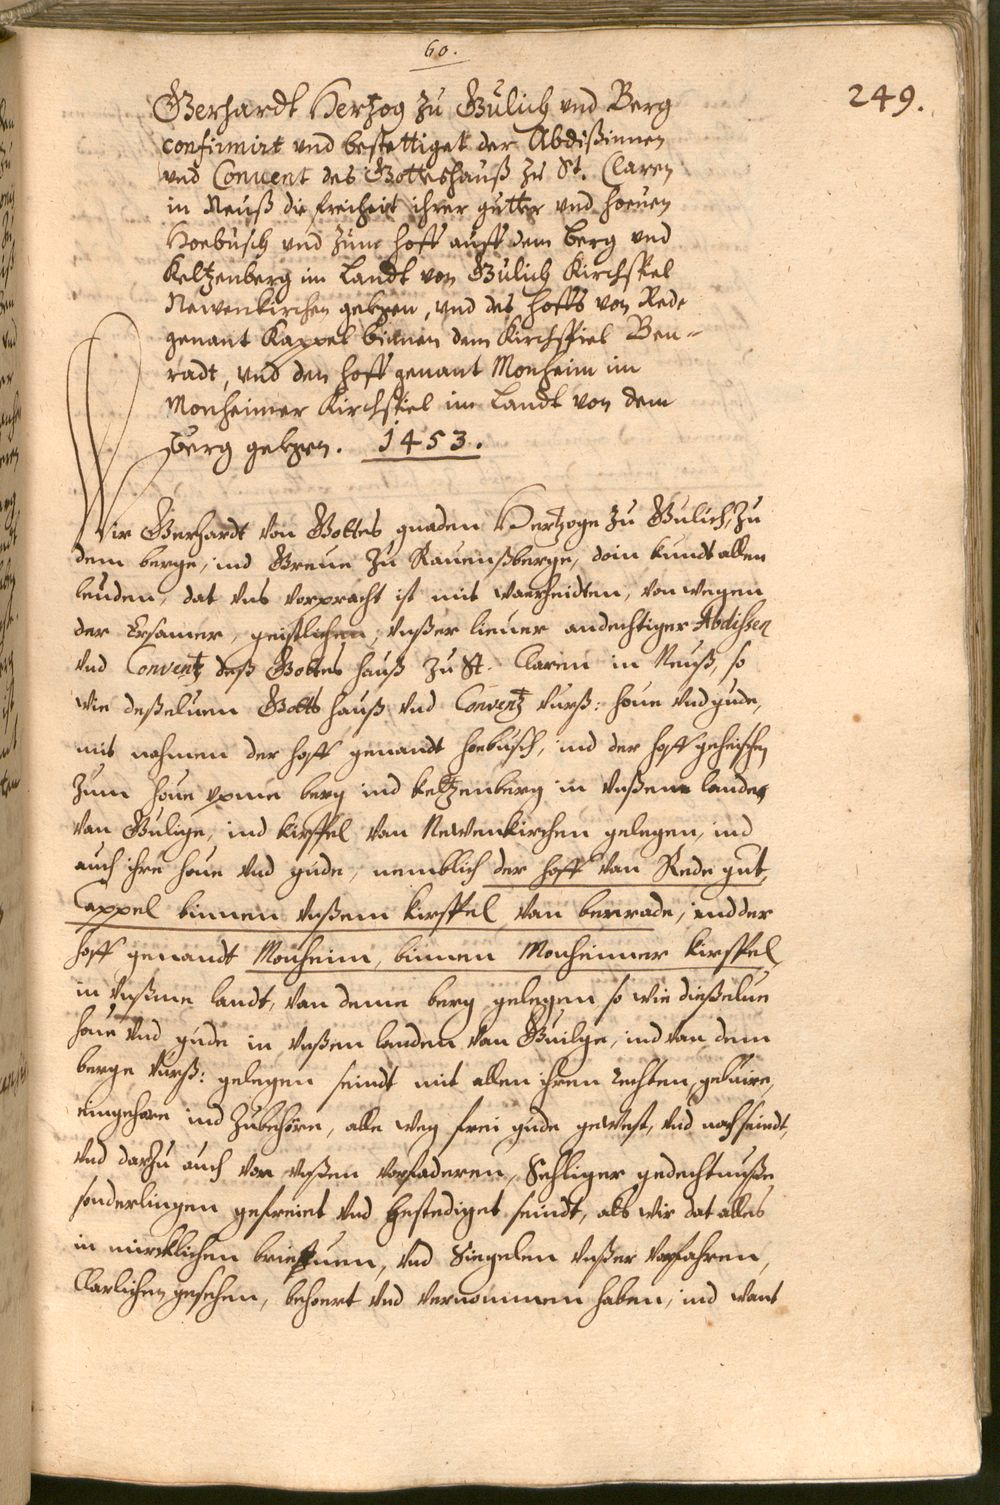 60.
249.
Gerhardt Hertzog zu Gulich vnd Berg
confirmirt vnd bestettiget der Abdißinnen
vnd Conuent des Gotteshauß zu St. Claren
in Neuß die freiheit ihrer gutter vnd hoeuen
Hoebusch vnd zum hoff auff dem berg vnd
Keltzenberg im Landt von Gulich Kirchspel
Newenkirchen gelegen, vnd des hoffs von Rede
genant Kappel binnen dem Kirchspiel Ben-
radt, vnd den hoff genant Monheim im
Monheimer Kirchspiel im Landt von dem
Berg gelegen. 1453.
Wir Gerhardt von Gottes gnaden Hertzoge zu Gulich, zu
dem berge, ind Greue zu Rauenßberge, doin kundt allen
leuden, dat vns vorpracht ist mit waerheidten, von wegen
der Ersamer, geistlichen, vnßer lieuer andechtiger Abdissen
vnd Conventz deß Gottes hauß zu St. Claren in Neuß, so
wie deßeluen Gotts hauß vnd Conventz vurß: houe vnd gude,
mit nahmen der hoff genandt hoebusch, ind der hoff geheischen
zum houe vpme berg ind keltzenberg in vnßeme lande
van Gulige, ind kirspel van Newenkirchen gelegen, ind
auch ihre houe vnd gude, nemblich der hoff van Rede gnt.
Cappel binnen vnßem kirspel van benrade, ind der
hoff genandt Monheim, binnen Monheimer kirspel
in vnßme landt, van deme berg gelegen so wie dießelue
houe vnd gude in vnßen landen van Guilge, ind van dem
berge vurß: gelegen seindt mit allen ihren rechten, gebuire,
ingehoren ind zubehoren, alle weg frei gude gewest, vnd noch seindt,
vnd darzu auch von vnßen vorfaderen, Sehliger gedechtnuße
sonderlingen gefreiet vnd bestediget seindt, als wir dat alles
in mircklichen brieffuen, vnd Siegelen vnßer vorfahren,
Clarlichen gesehen, behoert vnd vernommen haben, ind want